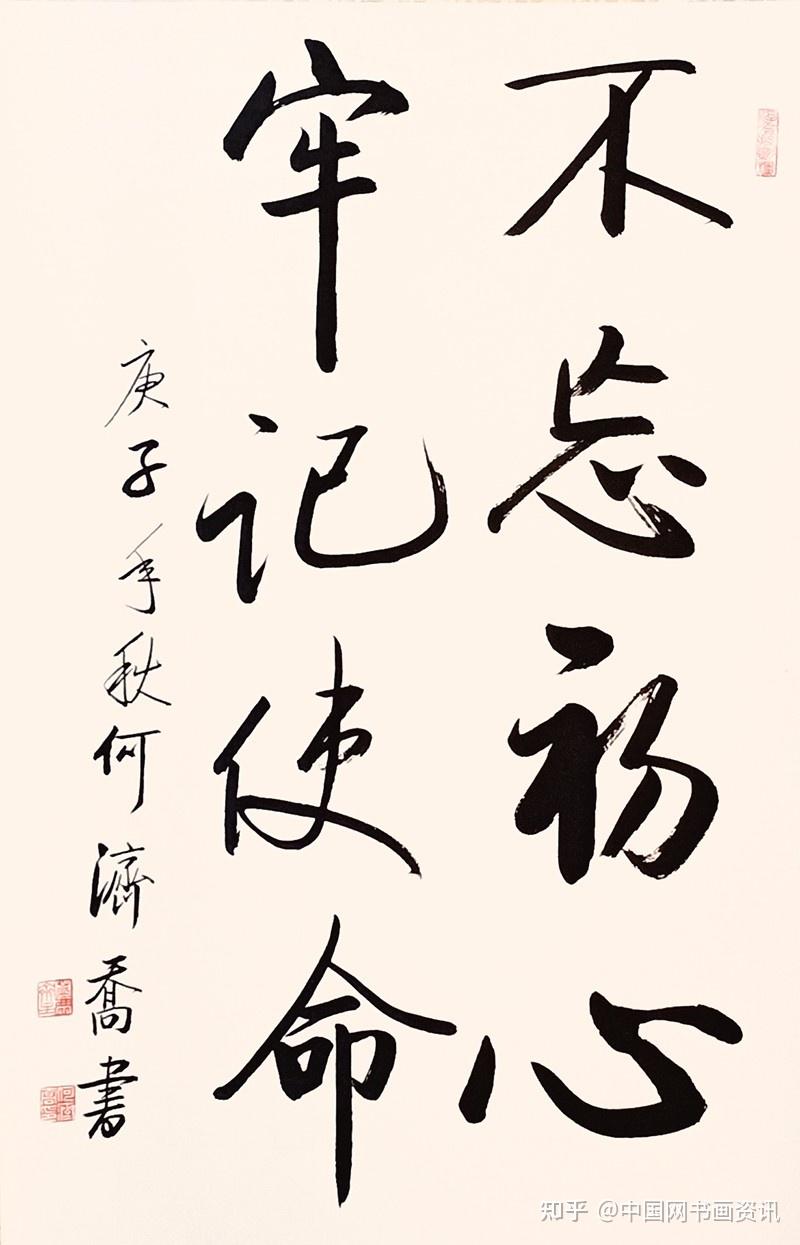 不忘初心
牢记使命
庚子年秋何濟喬書
知乎 @中国网书画资讯